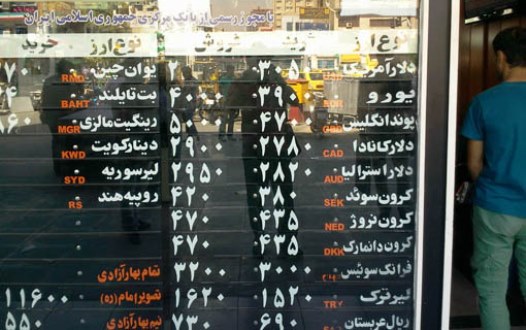 با مجوز رسمی از بانک مرکزی جمهوری اسلامی ایران
نوع ارز خرید فروش نوع ارز خرید
دلار آمریکا یوان چین RMB
یورو ۴۰۰ بت تایلند BAHT
پوند انگلیس GBD ۴۷۰ رینگیت مالزی MGR
دلار کانادا CAD ۲۷۸۰ ۲۹۰۰ دینار کویت KWD
دلار استرالیا AUD ۲۸۲۰ ۲۹۵۰ لیر سوریه SYD
کرون سوئد SEK ۳۸۰ ۴۲۰ روپیه هند RS
کرون نروژ NED ۴۳۵ ۴۷۰
کرون دانمارک DKK ۴۳۵ ۴۷۰
فرانک سوئیس ۳۰۰۰ ۳۲۰۰ تمام بهار آزادی
لیر ترک TRY ۱۵۲۰ ۱۶۲۰ تصویر امام (ره) ۱۱۶۰۰
ریال عربستان ۶۹۰ ۷۳۰ نیم بهار آزادی ۵۵۰